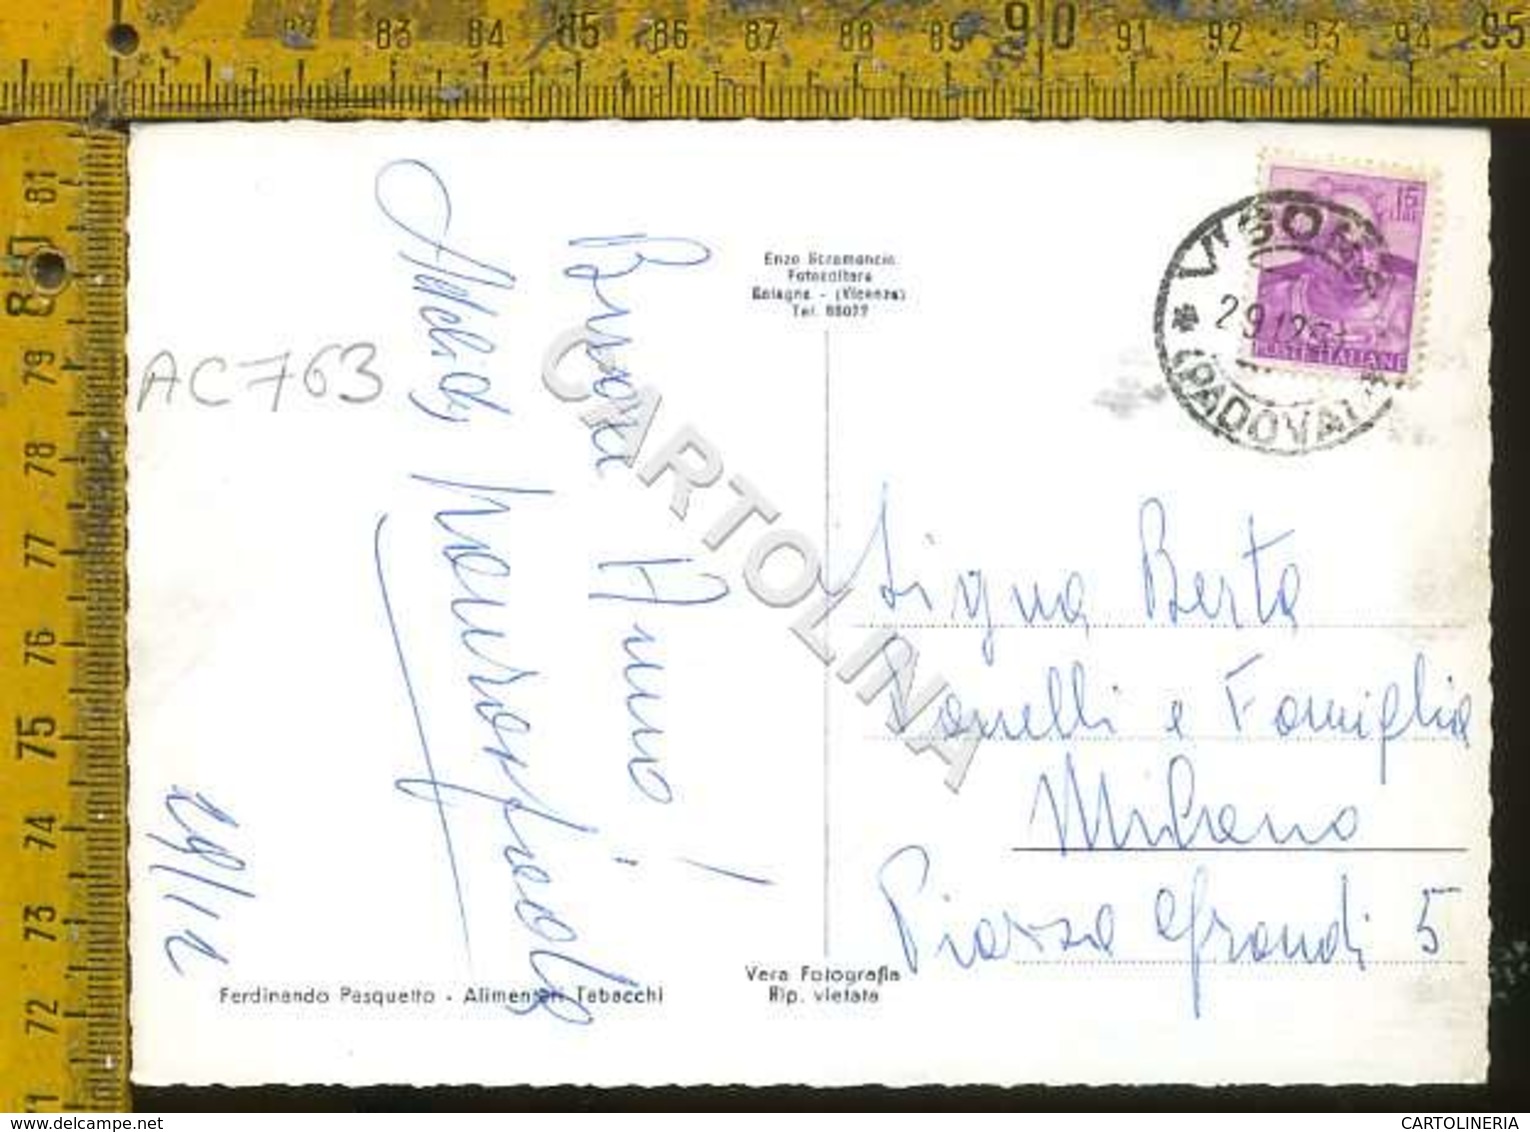 83 84 85 86 87 88 89 90 91 92 93 94 95
81
80
79
78
77
76
75
74
73
72
71
AC763
Buon Anno!
29/12
Enzo Scramoncin
Fotocoltore
Bolagna - (Vicenza)
Tel. 88077
Vera Fotografia
Rip. vietata
Ferdinando Pasquetto - Alimentari Tabacchi
15
LIRE
POSTE ITALIANE
29.12.
(PADOVA)
Sig.na Berta
e Famiglia
Milano
Piazza Grandi 5
CARTOLINA
CARTOLINERIA